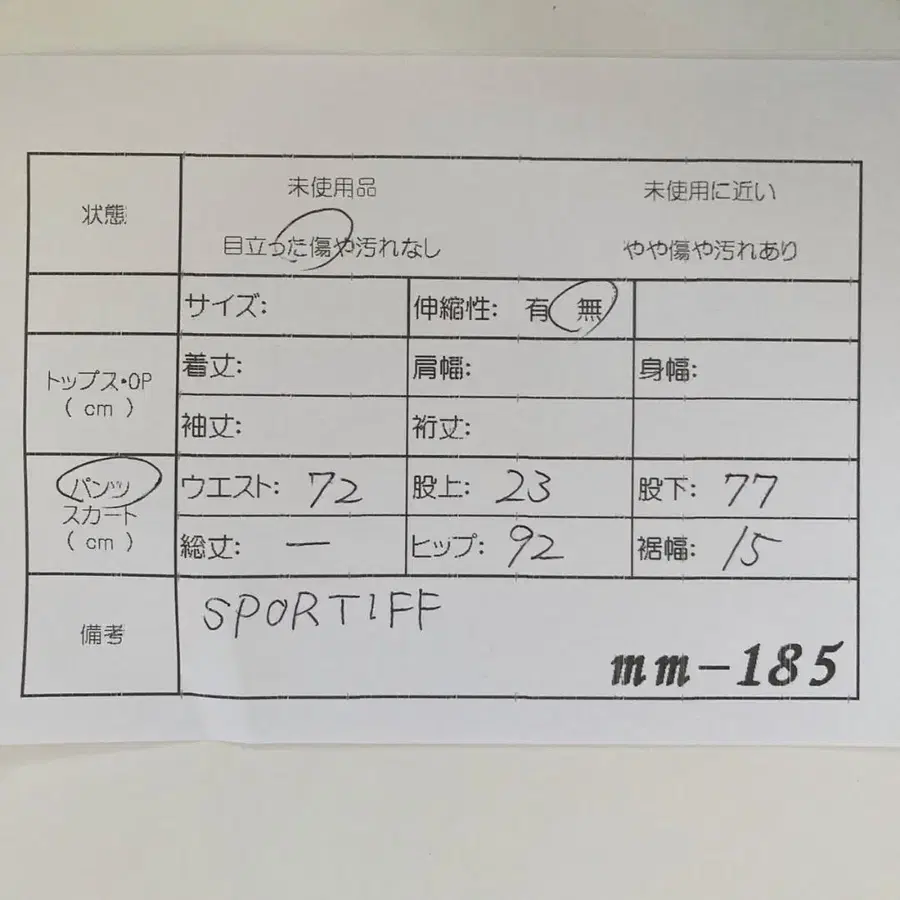 状態
未使用品 未使用に近い
目立った傷や汚れなし やや傷や汚れあり
サイズ: 伸縮性: 有 無
トップス・OP
( cm )
着丈: 肩幅: 身幅:
袖丈: 裄丈:
パンツ
スカート
( cm )
ウエスト: 72 股上: 23 股下: 77
総丈: ー ヒップ: 92 裾幅: 15
備考
SPORTIFF
mm-185